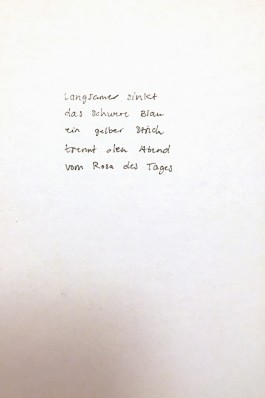 Langsamer sinkt
das schwere Blau
ein gelber Strich
trennt den Abend
vom Rosa des Tages